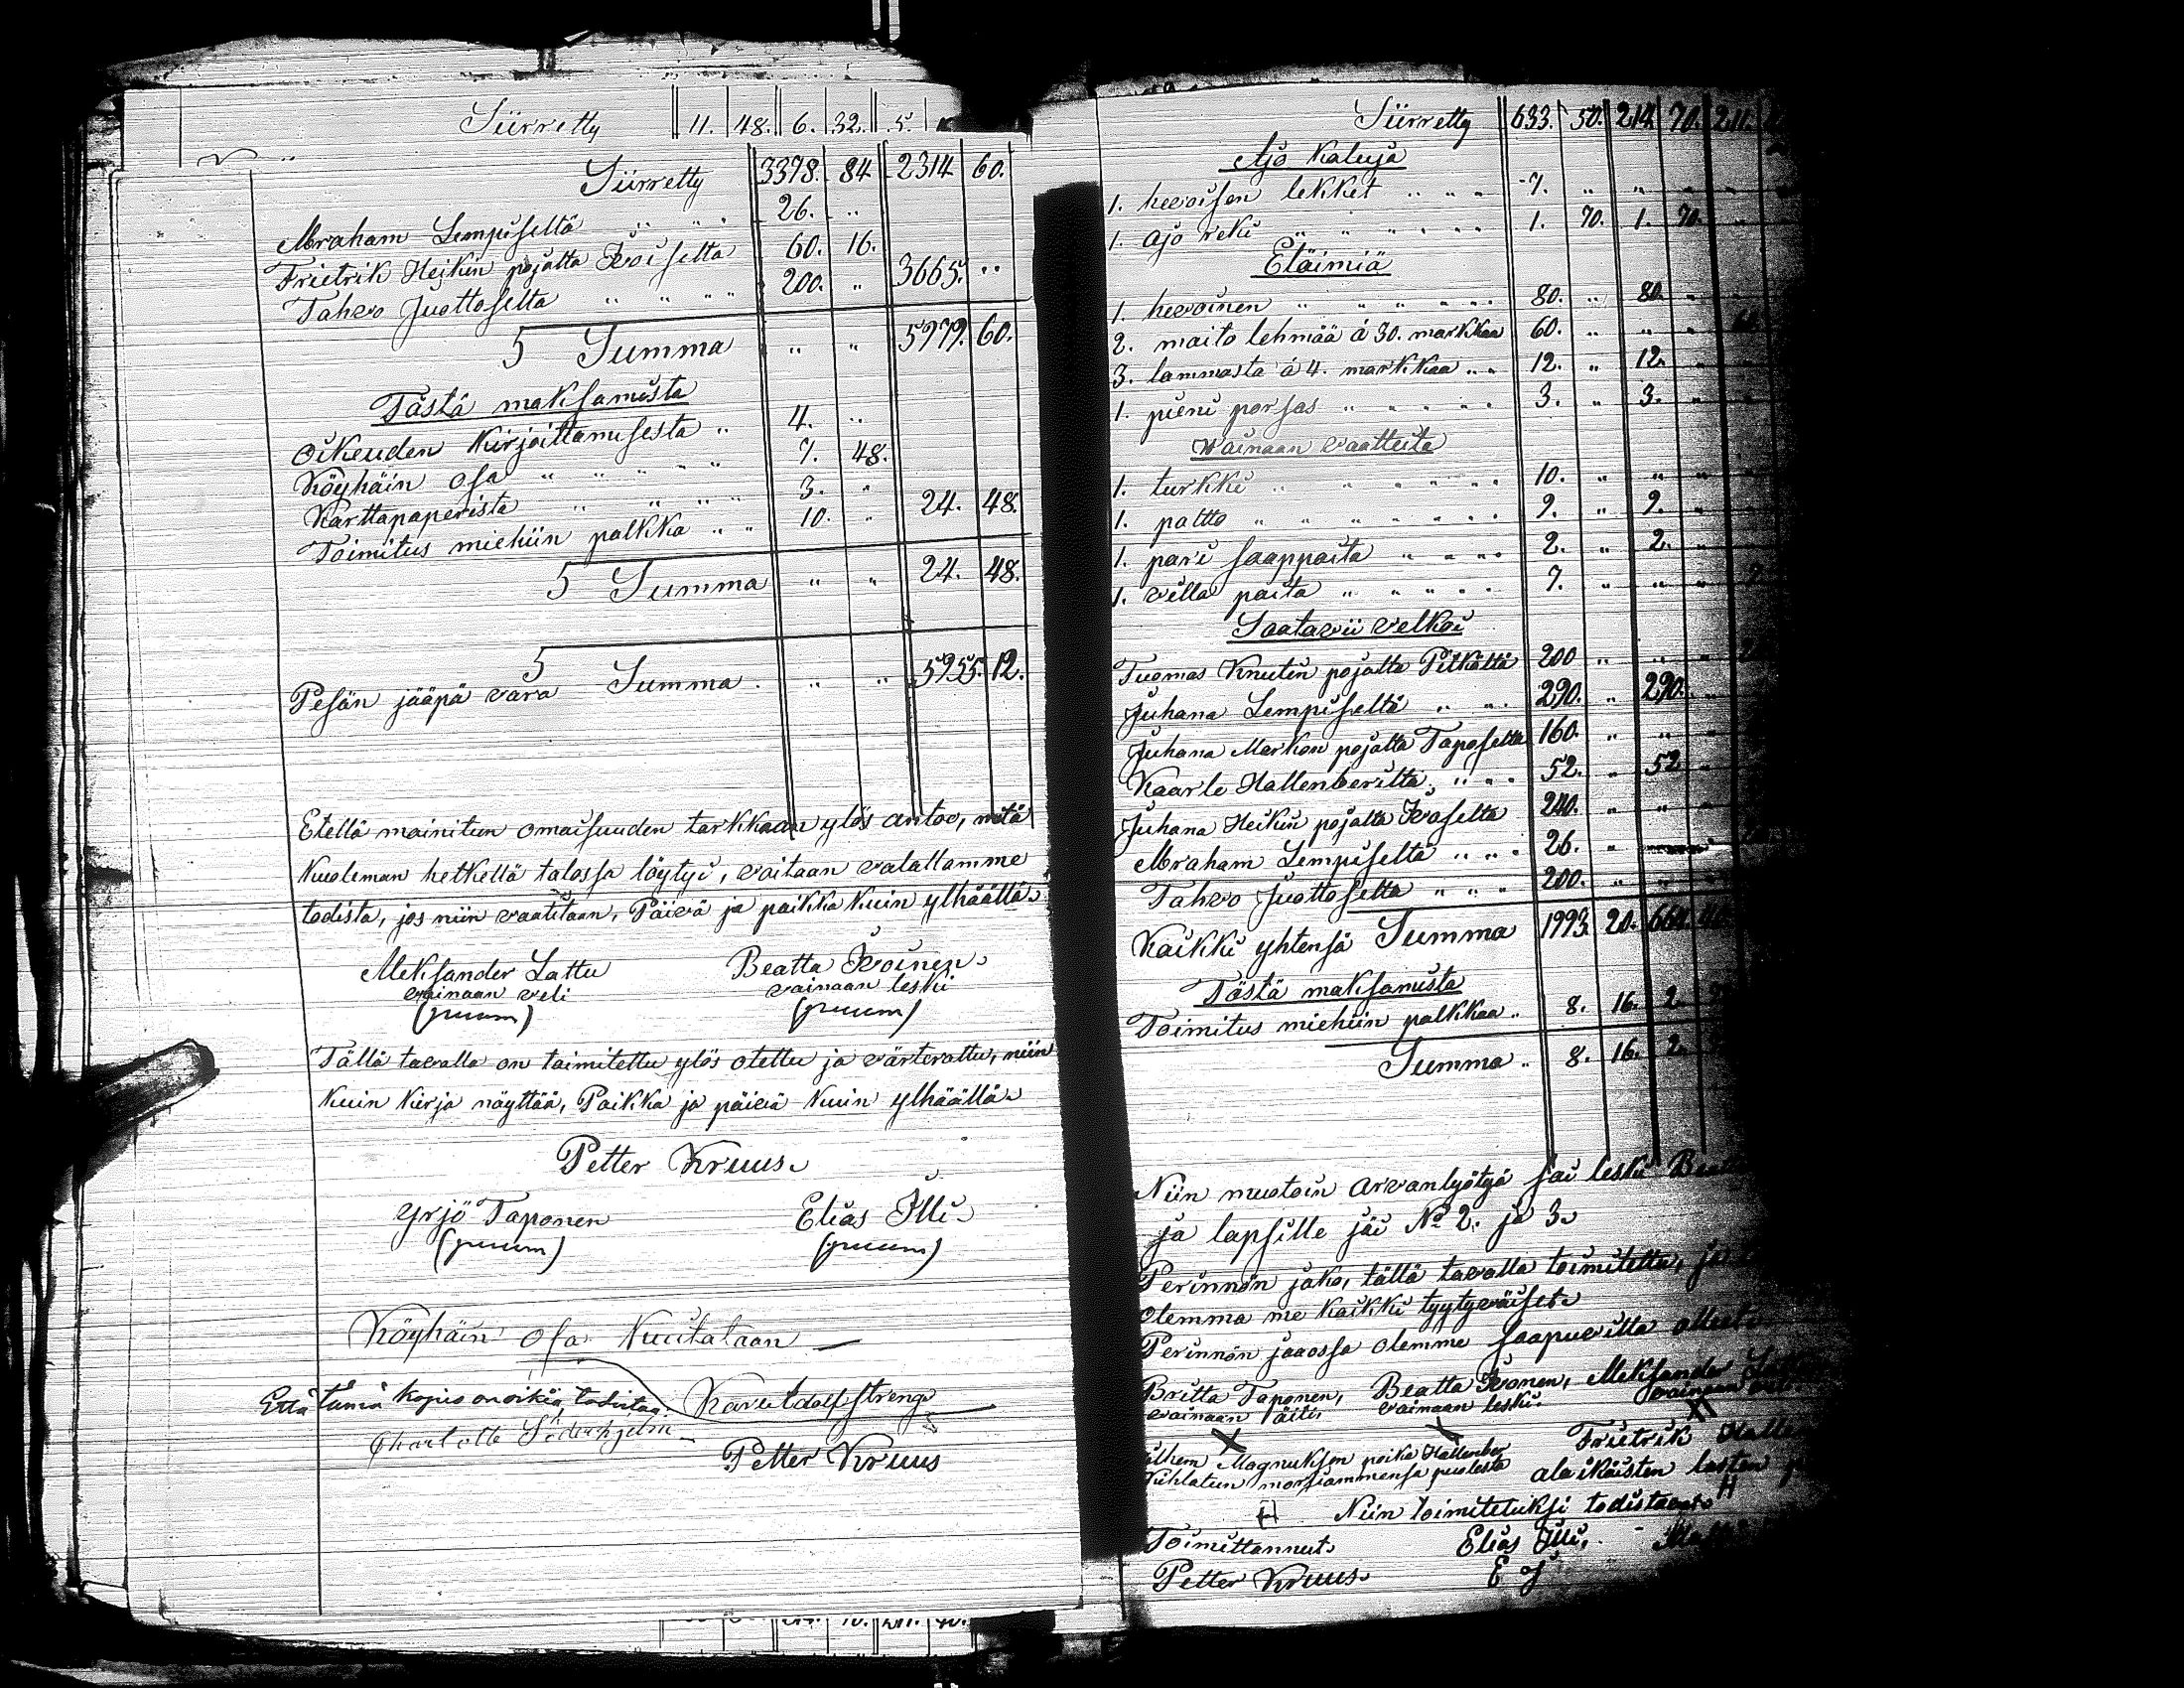 Siirretty 11. 48. 6. 32. 5.
Siirretty 3378. 84 2314 60.
Abraham Lempiseltä " " " 26. "
Frietrik Heikin pojalta Ikoiselta 60. 16.
Tahvo Juottoselta " " " " 200. " 3665. "
S Summa " " 5979. 60.
Tästä maksamista
Oikeuden Kirjoittamisesta " 4. "
Köyhäin osa " " " " " 7. 48.
Karttapaperista " " " " 3. "
Toimitus miehiin palkka " " 10. " 24. 48.
S Summa " " 24. 48.
Pesän jääpä vara S Summa " " 5955. 12.
Etellä mainitun omaisuuden tarkkaan ylös antoo, mitä
Kuoleman hetkellä talossa löytyi, voitaan valallamme
todista, jos niin vaatitaan, Päivä ja paikka kuin ylhäällä.
Aleksander Lattu Beatta Ikoinen
vainaan veli vainaan leski
(puum) (puum)
Tällä tavalla on toimitettu ylös otettu ja värterattu, niin
kuin kirja näyttää, Paikka ja päivä kuin ylhäällä.
Petter Kruus
Yrjö Taponen Elias Illi
(puum) (puum)
Köyhäin osa Kuitataan
Että tämä kopio on oikia, todistaa Karl Adolf Streng
Charlotta Söderhjelm
Petter Kruus
Siirretty 633. 50. 214 70. 211.
Ajo Kaluja
1. hevoisen lekket " " " 7. " " "
1. Ajo reki " " " " " 1. 70. 1. 70.
Eläimiä
1. hevoinen " " " " " 80. " 80. "
2. maito lehmää á 30. markkaa 60. " " "
3. lammasta á 4. markkaa " " 12. " 12. "
1. pieni porsas " " " " " 3. " 3. "
Wainaan vaatteita
1. turkki " " " " " 10. " " "
1. paltto " " " " " " 9. " 9. "
1. pari saappaita " " " " 2. " 2. "
1. villa paita " " " " " 7. " " "
Saatavii velkoi
Tuomas Knutin pojalta Pitkältä 200 " " "
Juhana Lempiseltä " " " 290. " 290. "
Juhana Markon pojalta Taposelta 160. " " "
Kaarle Hallenberilta " " " 52. " 52 "
Juhana Heikin pojalta Ikoselta 240. " " "
Abraham Lempiseltä " " " 26. "
Tahvo Juottoselta " " " 200. " " "
Kaikki yhtensä Summa 1993. 20. 664.
Tästä maksamista
Toimitus miehiin palkkaa " 8. 16. 2.
Summa " 8. 16. 2.
Niin muotoin arvanlyötyä sai leski
ja lapsille jäi No 2. ja 3.
Perinnön jako, tällä tavalla toimitettu, ja
olemma me kaikki tyytyväiset.
Perinnön jaossa olemme saapuvilla
Britta Taponen, Beatta Ikonen, Aleksander
vainaan äiti. vainaan leski. vainaan
X X XI
Magnuksen poika Hallenber Frietrik
morsiammensa puolesta alaikäisten lasten
H
Niin toimitetuksi todistaa
Toimittannut. Elias Illi.
Petter Kruus. E J